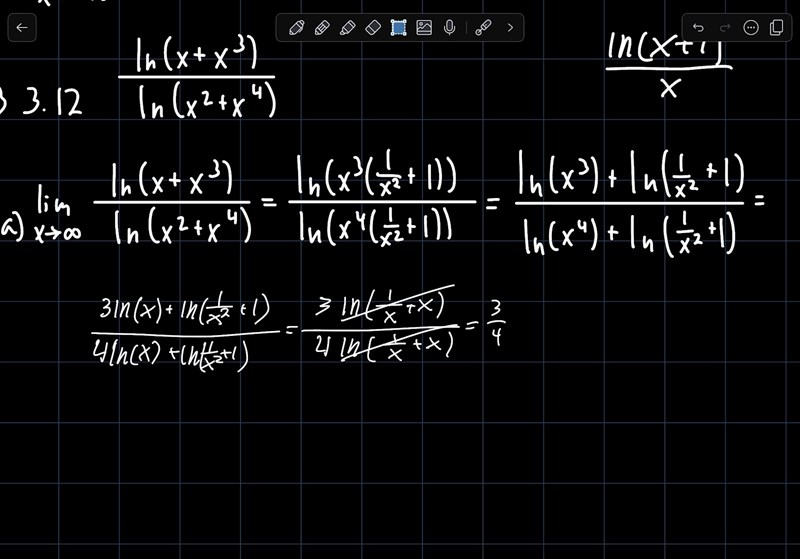 3.12 ln(x+x³)/ln(x²+x⁴)
ln(x+1)/x
a) lim x→∞ ln(x+x³)/ln(x²+x⁴) = ln(x³(1/x²+1))/ln(x⁴(1/x²+1)) = ln(x³)+ln(1/x²+1)/ln(x⁴)+ln(1/x²+1) =
3ln(x)+ln(1/x²+1)/4ln(x)+ln(1/x²+1) = 3 ln(1/x+x)/4 ln(1/x+x) = 3/4